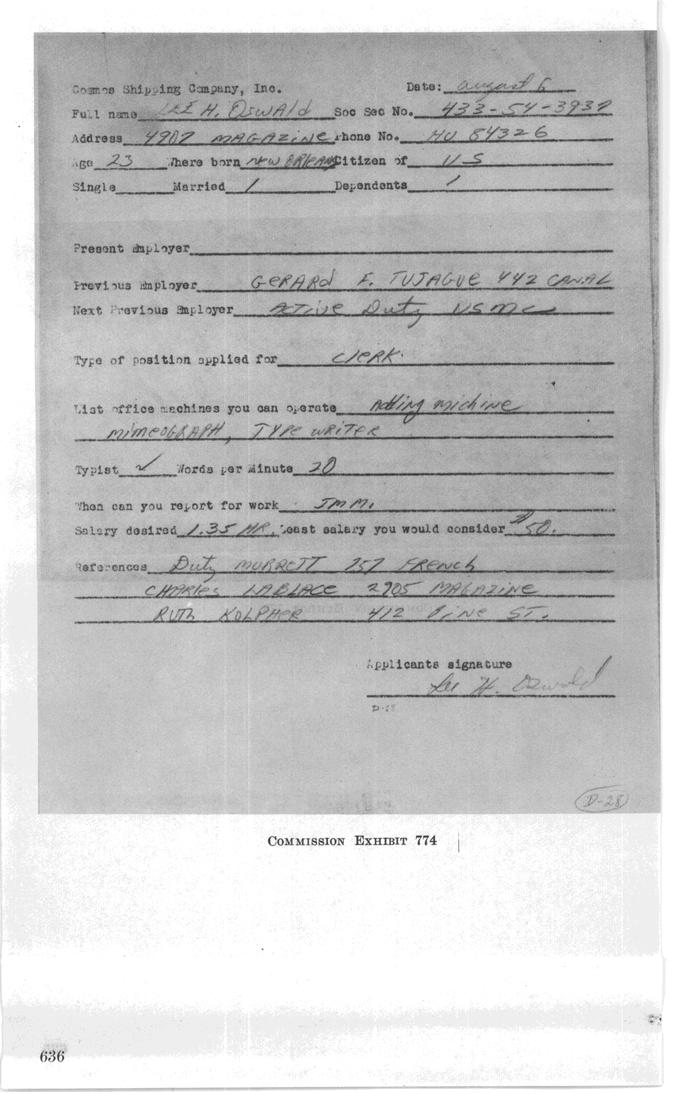 Cosmos Shipping Company, Inc. Date: august 6
Full name LEE H. OSWALD Soc Sec No. 433-54-3937
Address 4907 MAGAZINE Phone No. HU 84326
Age 23 Where born NEW ORLEANS Citizen of US
Single Married / Dependents /
Present Employer
Previous Employer GERARD F. TUJAGUE 442 CANAL
Next Previous Employer ACTIVE Duty USMC
Type of position applied for clerk.
List office machines you can operate adding michine
MIMEOGRAPH, TYPE WRITER
Typist ✓ Words per Minute 20
When can you report for work IMM.
Salary desired 1.35 HR. Least salary you would consider $50.
References Dutz MURRETT 757 FRENCH
CHARLES LABLACE 2905 MAGAZINE
RUTH KOLPHER 412 PINE ST.
Applicants signature
Lee H. Oswald
D-28
D-28
COMMISSION EXHIBIT 774
636